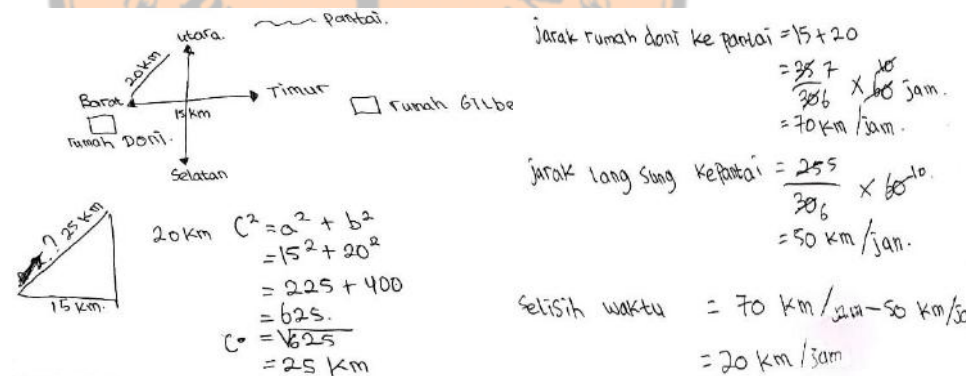 pantai.
Utara.
20 km
Barat
Timur
15 km
rumah Doni.
rumah Gilbe
Selatan
? 25 km
20 km
15 km.
C² = a² + b²
= 15² + 20²
= 225 + 400
= 625.
C = √625
= 25 km
jarak rumah doni ke pantai = 15 + 20
= 35 7 / 30 6 × 60 10 jam.
= 70 km / jam.
jarak lang sung kepantai = 25 5 / 30 6 × 60 10.
= 50 km / jan.
Selisih waktu = 70 km / jam - 50 km / ja
= 20 km / jam